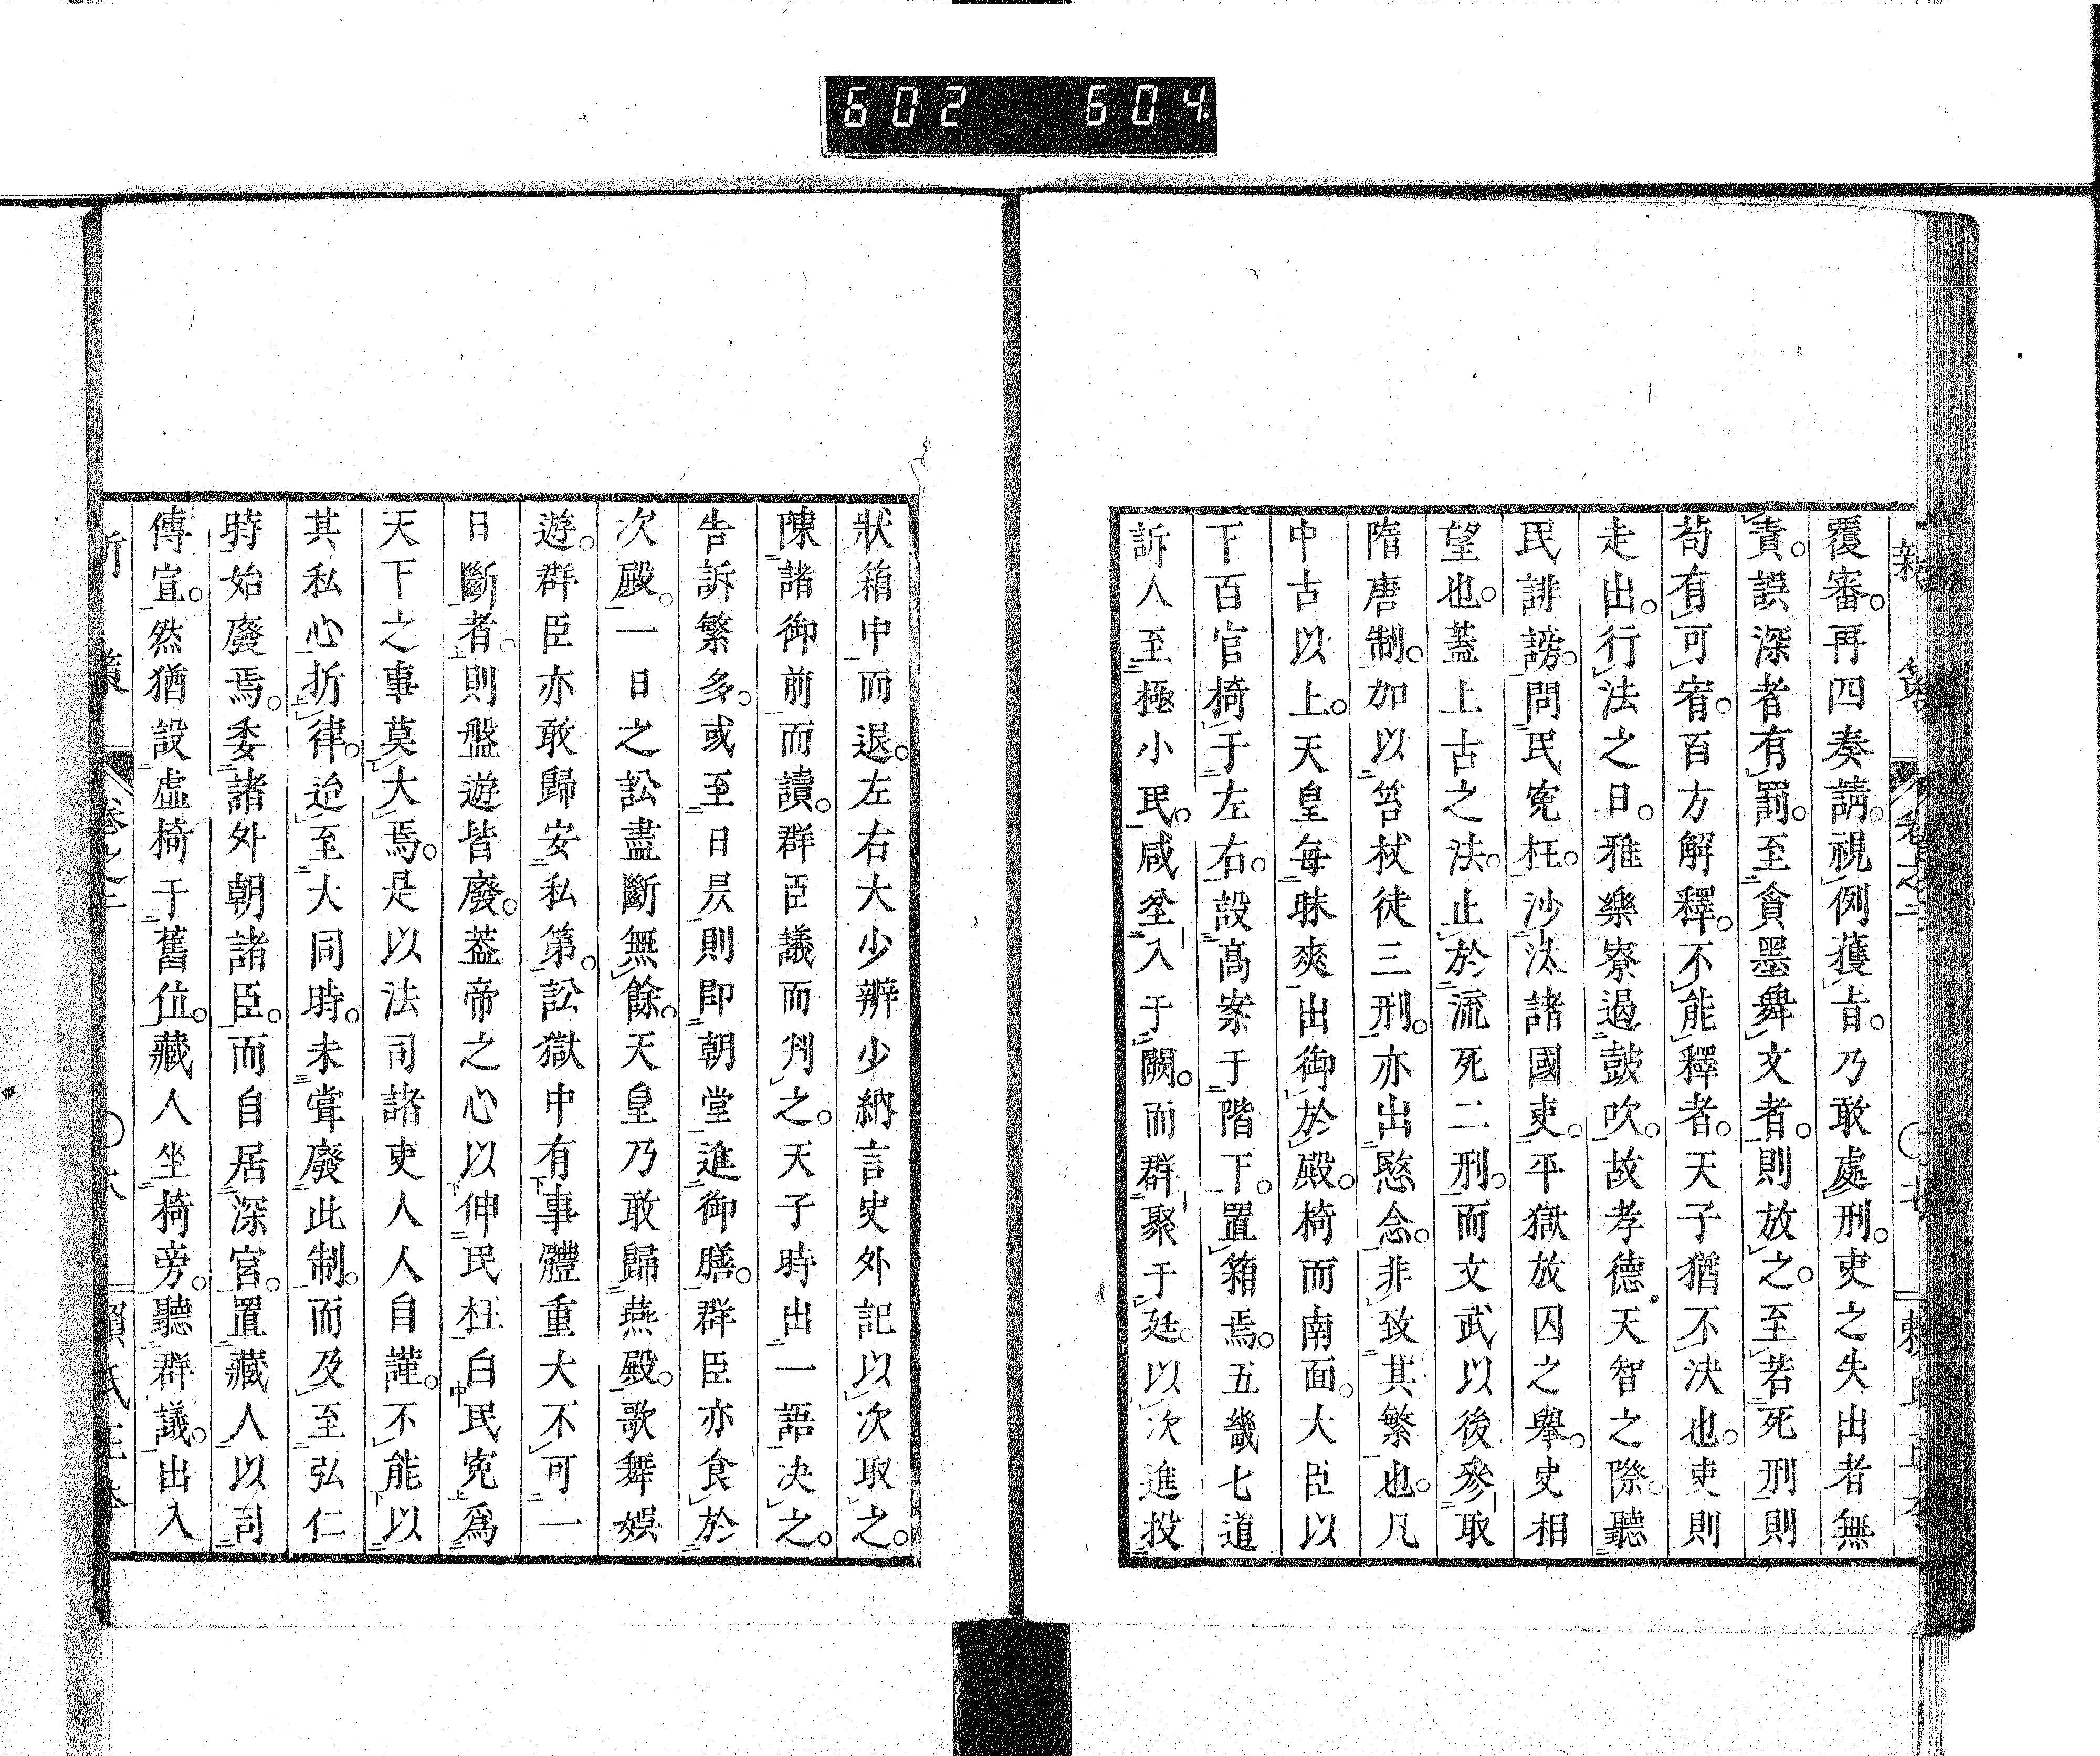 602 604
覆審。再四奏請。視例獲旨。乃敢處刑。吏之失出者無
責。誤深者有罰。至貪墨舞文者。則放之。至若死刑則
苟有可宥。百方解釋。不能釋者。天子猶不決也。吏則
走出。行法之日。雅樂寮遏鼓吹。故孝德天智之際。聽
民誹謗。問民寃枉。沙汰諸國吏。平獄放囚之舉。史相
望也。蓋上古之法。止於流死二刑。而文武以後參取
隋唐制。加以笞杖徒三刑。亦出愍念。非致其繁也。凡
中古以上。天皇每昧爽出御於殿。椅而南面。大臣以
下百官椅于左右。設高案于階下。置箱焉。五畿七道
訴人至極小民。咸坌入于闕。而群聚于廷。以次進投
狀箱中而退。左右大少辨少納言史外記以次取之。
陳諸御前而讀。群臣議而判之。天子時出一語決之。
告訴繁多。或至日昃則即朝堂進御膳。群臣亦食於
次殿。一日之訟盡斷無餘。天皇乃敢歸燕殿。歌舞娛
遊。群臣亦敢歸安私第。訟獄中有事體重大不可一
日斷者。則盤遊皆廢。蓋帝之心以伸民枉白民寃爲
天下之事莫大焉。是以法司諸吏人人自謹。不能以
其私心折律。迨至大同時。未嘗廢此制。而及至弘仁
時始廢焉。委諸外朝諸臣。而自居深宮。置藏人以司
傳宣。然猶設虛椅于舊位。藏人坐椅旁。聽群議。出入
卷之二